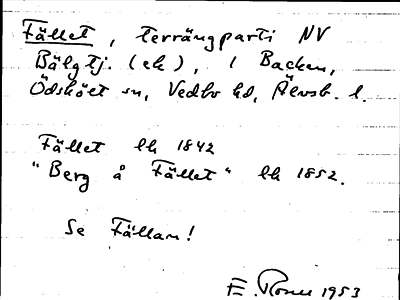 Fället, terrängparti NV
Bälgtj. (ek), i Backen,
Ödskölt sn, Vedbo hd, Älvsb. l.
Fället lk 1842
"Berg å Fället" lk 1852.
Se Fällan!
E. Rosell 1953